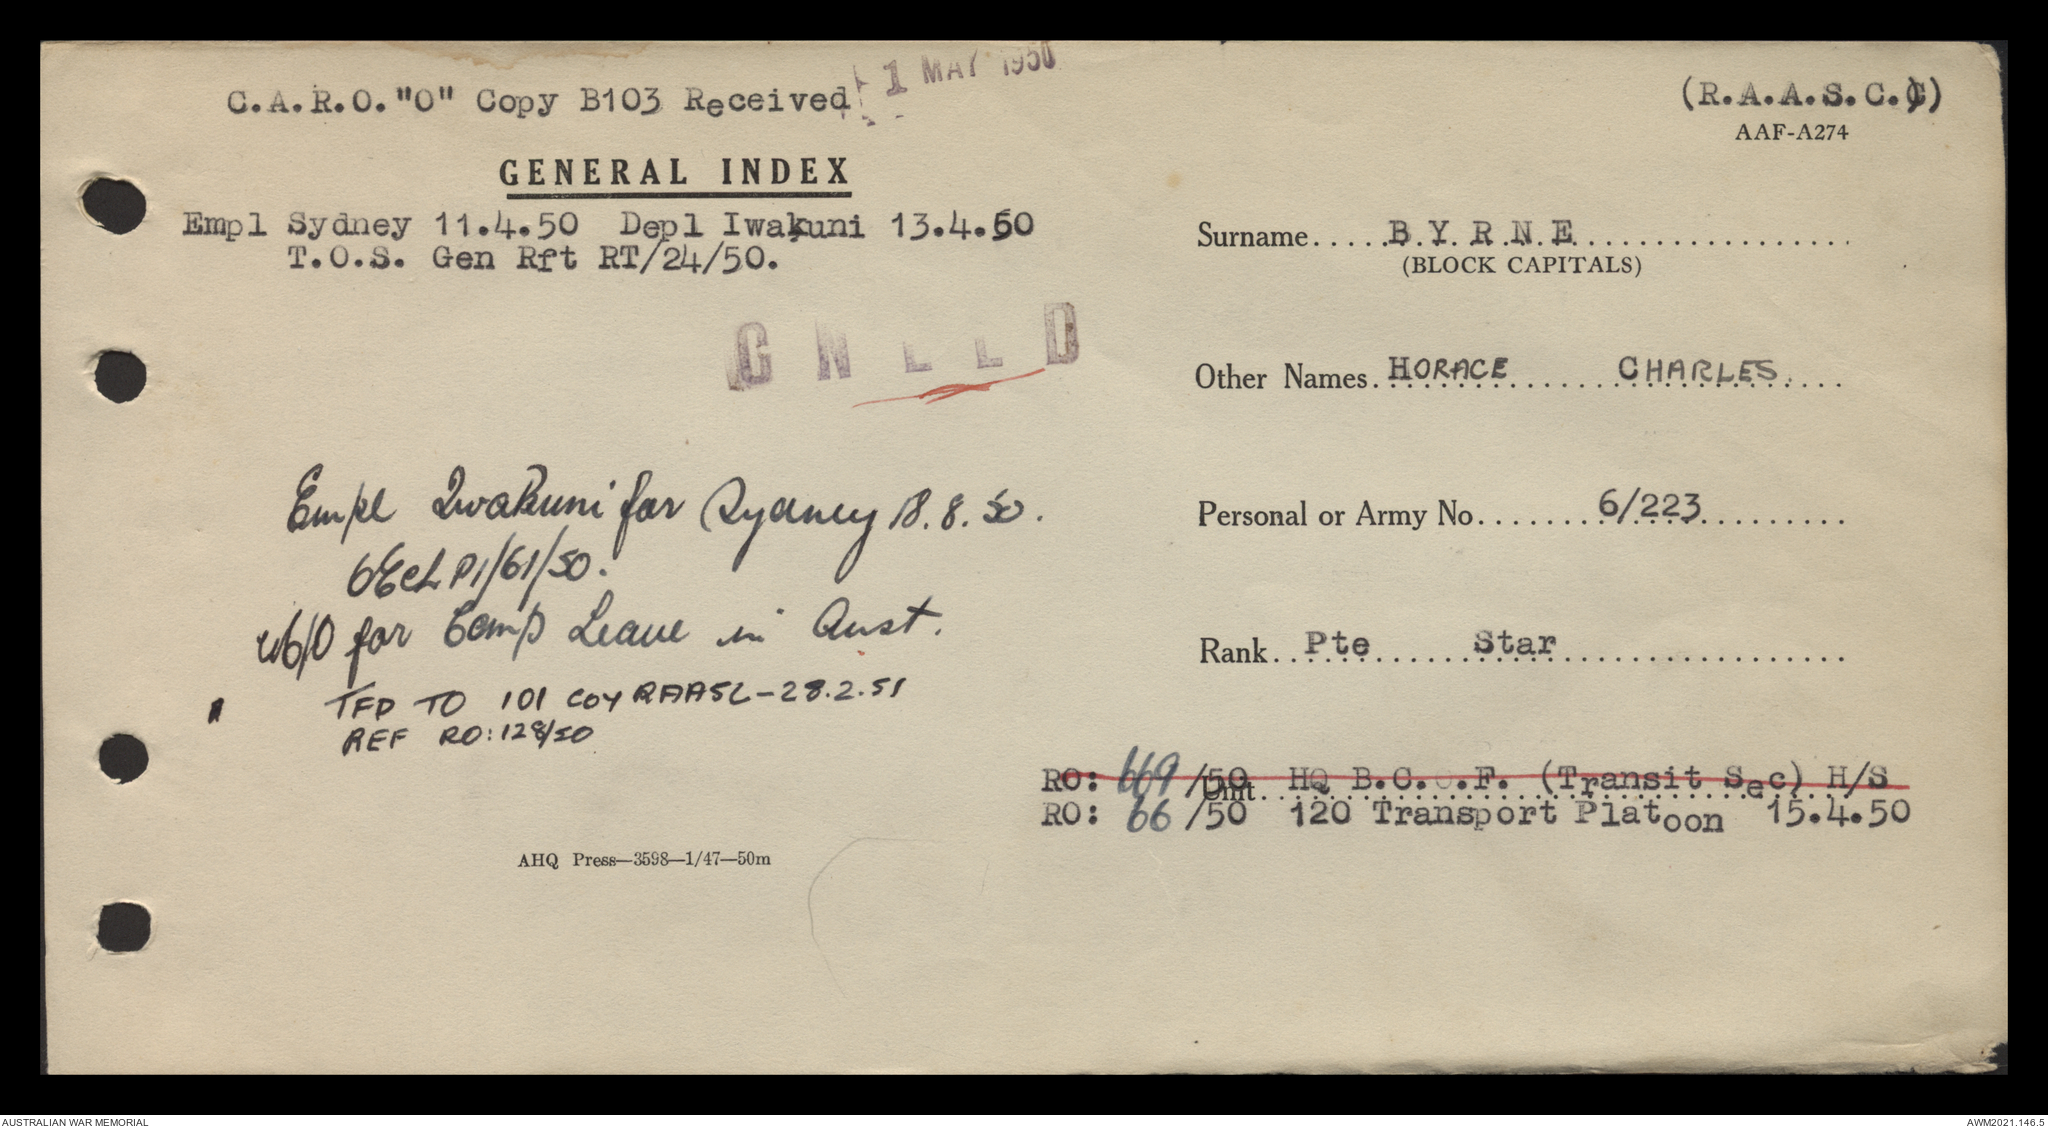 C.A.R.O."O" Copy B103 Received 1 MAY 1950
(R.A.A.S.C.)
AAF-A274
GENERAL INDEX
Empl Sydney 11.4.50 Depl Iwakuni 13.4.50
T.O.S. Gen Rft RT/24/50.
Surname.....BYRNE
(BLOCK CAPITALS)
Other Names. HORACE CHARLES
Empl Iwakuni for Sydney 18.8.50.
P1/61/50.
for Comp Leave in Aust.
TFD TO 101 COY RAASC-28.2.51
REF RO:128/50
Personal or Army No. 6/223
Rank Pte Star
RO: 669/50 Unit HQ B.C.O.F. (Transit Sec) H/S
RO: 66/50 120 Transport Platoon 15.4.50
AHQ Press—3598—1/47—50m
AUSTRALIAN WAR MEMORIAL
AWM2021.146.5